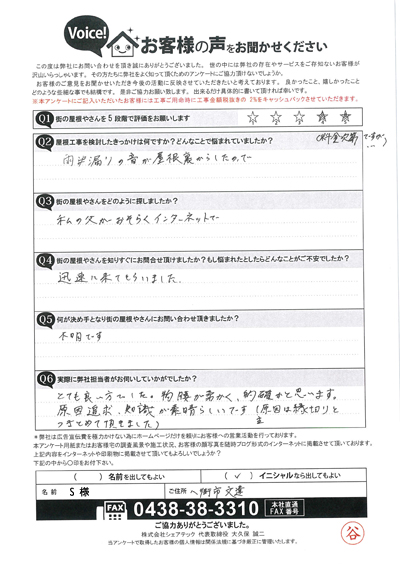 Voice!
お客様の声をお聞かせください
この度は弊社にお問い合わせを頂き誠にありがとうございました。世の中には弊社の存在やサービスをご存知ないお客様が
沢山いらっしゃいます。その方たちに弊社をよく知って頂くためのアンケートにご協力頂けないでしょうか。
お客様のご意見をお聞かせいただき今後の活動に反映させていただきたいと考えております。良かったこと、嬉しかったこと
どのような些細な事でも結構です。是非ご協力お願い致します。出来るだけ具体的に書いて頂ければ幸いです。
※本アンケートにご記入いただいたお客様には工事ご用命時に工事金額税抜きの 2%をキャッシュバックさせていただきます。
Q1 街の屋根やさんを 5 段階で評価をお願いします
Q2 屋根工事を検討したきっかけは何ですか?どんなことで悩まれていましたか?
(料金次第ですが
雨漏りの音が屋根裏からしたので
Q3 街の屋根やさんをどのように探しましたか?
私の父がおそらくインターネットで
Q4 街の屋根やさんを知りすぐにお問合せ頂けましたか?もし悩まれたとしたらどんなことがご不安でしたか?
迅速に来てもらいました
Q5 何が決め手となり街の屋根やさんにお問い合わせ頂きましたか?
不明です
Q6 実際に弊社担当者がお伺いしていかがでしたか?
とても良い方でした。物腰が柔かく、的確かと思います。
原因追求、知識が素晴らしいです(原因は縁切りと
つきとめて頂きました)
※弊社は広告宣伝費を極力かけない為にホームページだけを頼りにお客様への営業活動を行っております。
本アンケート用紙またはお客様宅の調査風景や施工状況、お客様の顔写真を随時ブログ形式のインターネットに掲載させて頂いております。
上記内容をインターネットや印刷物に掲載させて頂いてもよろしいでしょうか?
下記の中から○印をお付下さい。
( )名前を出してもよい
(✓)イニシャルなら出してもよい
名前 S様
ご住所
FAX 0438-38-3310 本社直通 FAX番号
ご協力ありがとうございました。
株式会社シェアテック 代表取締役 大久保 誠二
当アンケートで取得したお客様の個人情報は関係法規に基づき厳正に管理いたします。
谷